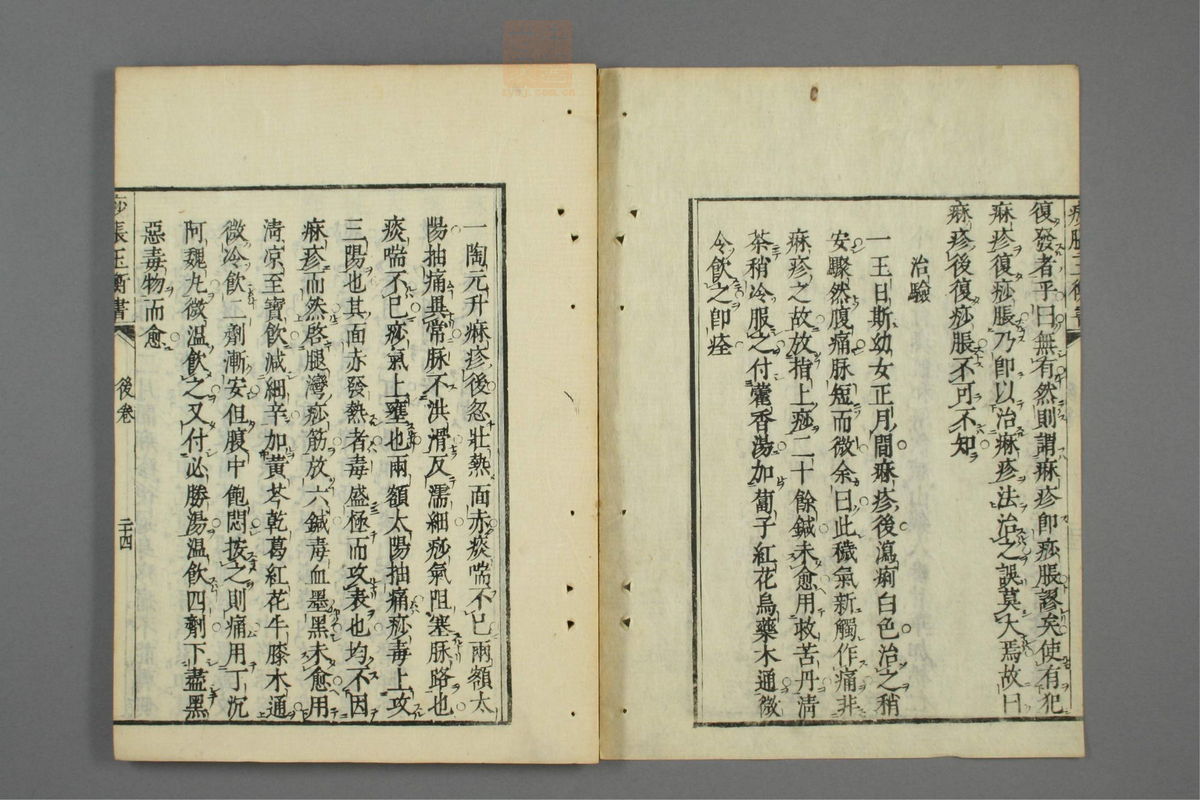 復發者乎曰無有然則謂痳疹即痧脹謬矣使有犯
痳疹復痧脹乃即以治痳疹法治之誤莫大焉故曰
痳疹後復痧脹不可不知
治驗
一王日斯幼女正月間痳疹後瀉痢白色治之稍
安驟然腹痛脉短而微余曰此穢氣新觸作痛非
痳疹之故放指上痧二十餘鍼未愈用救苦丹清
茶稍冷服之付藿香湯加蔔子紅花烏藥木通微
冷飲之即痊
一陶元升痳疹後忽壯熱面赤痰喘不已兩額太
陽抽痛異常脉不洪滑反濡細痧氣阻塞脉路也
痰喘不已痧氣上壅也兩額太陽抽痛痧毒上攻
三陽也其面赤發熱者毒盛極而攻表也均不因
痳疹而然啓腿灣痧筋放六鍼毒血墨黑未愈用
清凉至寶飲減細辛加黃芩乾葛紅花牛膝木通
微冷飲二劑漸安但腹中飽悶按之則痛用丁沉
阿魏丸微温飲之又付必勝湯温飲四劑下盡黑
惡毒物而愈
痧脹玉衡書
後卷
二十四